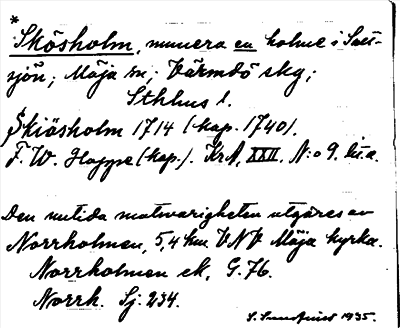 *
Skösholm, numera en holme i Saxsjön
sjön; Möja sn; Värmdö skg;
Sthlms l.
Skiösholm 1714 (kop. 1740).
F. W. Hoppe (kop.). KrA, XXII, N:o 9. lit. a.
Den nutida motsvarigheten utgöres av
Norrholmen, 5,4 km VNV Möja kyrka.
Norrholmen ek. G. 76.
Norrh. Sj. 234.
S. Sundquist 1935.